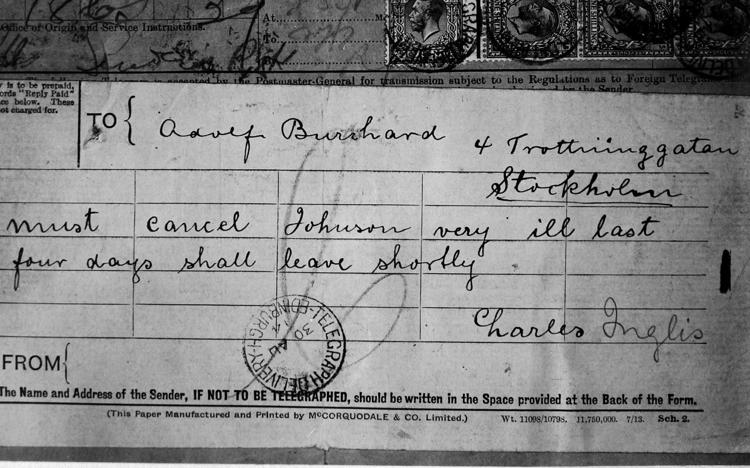 Office of Origin and Service Instructions.
At
To
is accepted by the Postmaster-General for transmission subject to the Regulations as to Foreign
the Sender
y is to be prepaid,
ords "Reply Paid"
ce below. These
not charged for.
TO
Adolf Burchard
4 Trottninggatan
Stockholm
must cancel Johnson very ill last
four days shall leave shortly
Charles Inglis
TELEGRAPH DELIVERY EDINBURGH
30 AU
14
FROM
The Name and Address of the Sender, IF NOT TO BE TELEGRAPHED, should be written in the Space provided at the Back of the Form.
(This Paper Manufactured and Printed by McCORQUODALE & CO. Limited.) Wt. 11098/10798. 11,750,000. 7/13. Sch. 2.